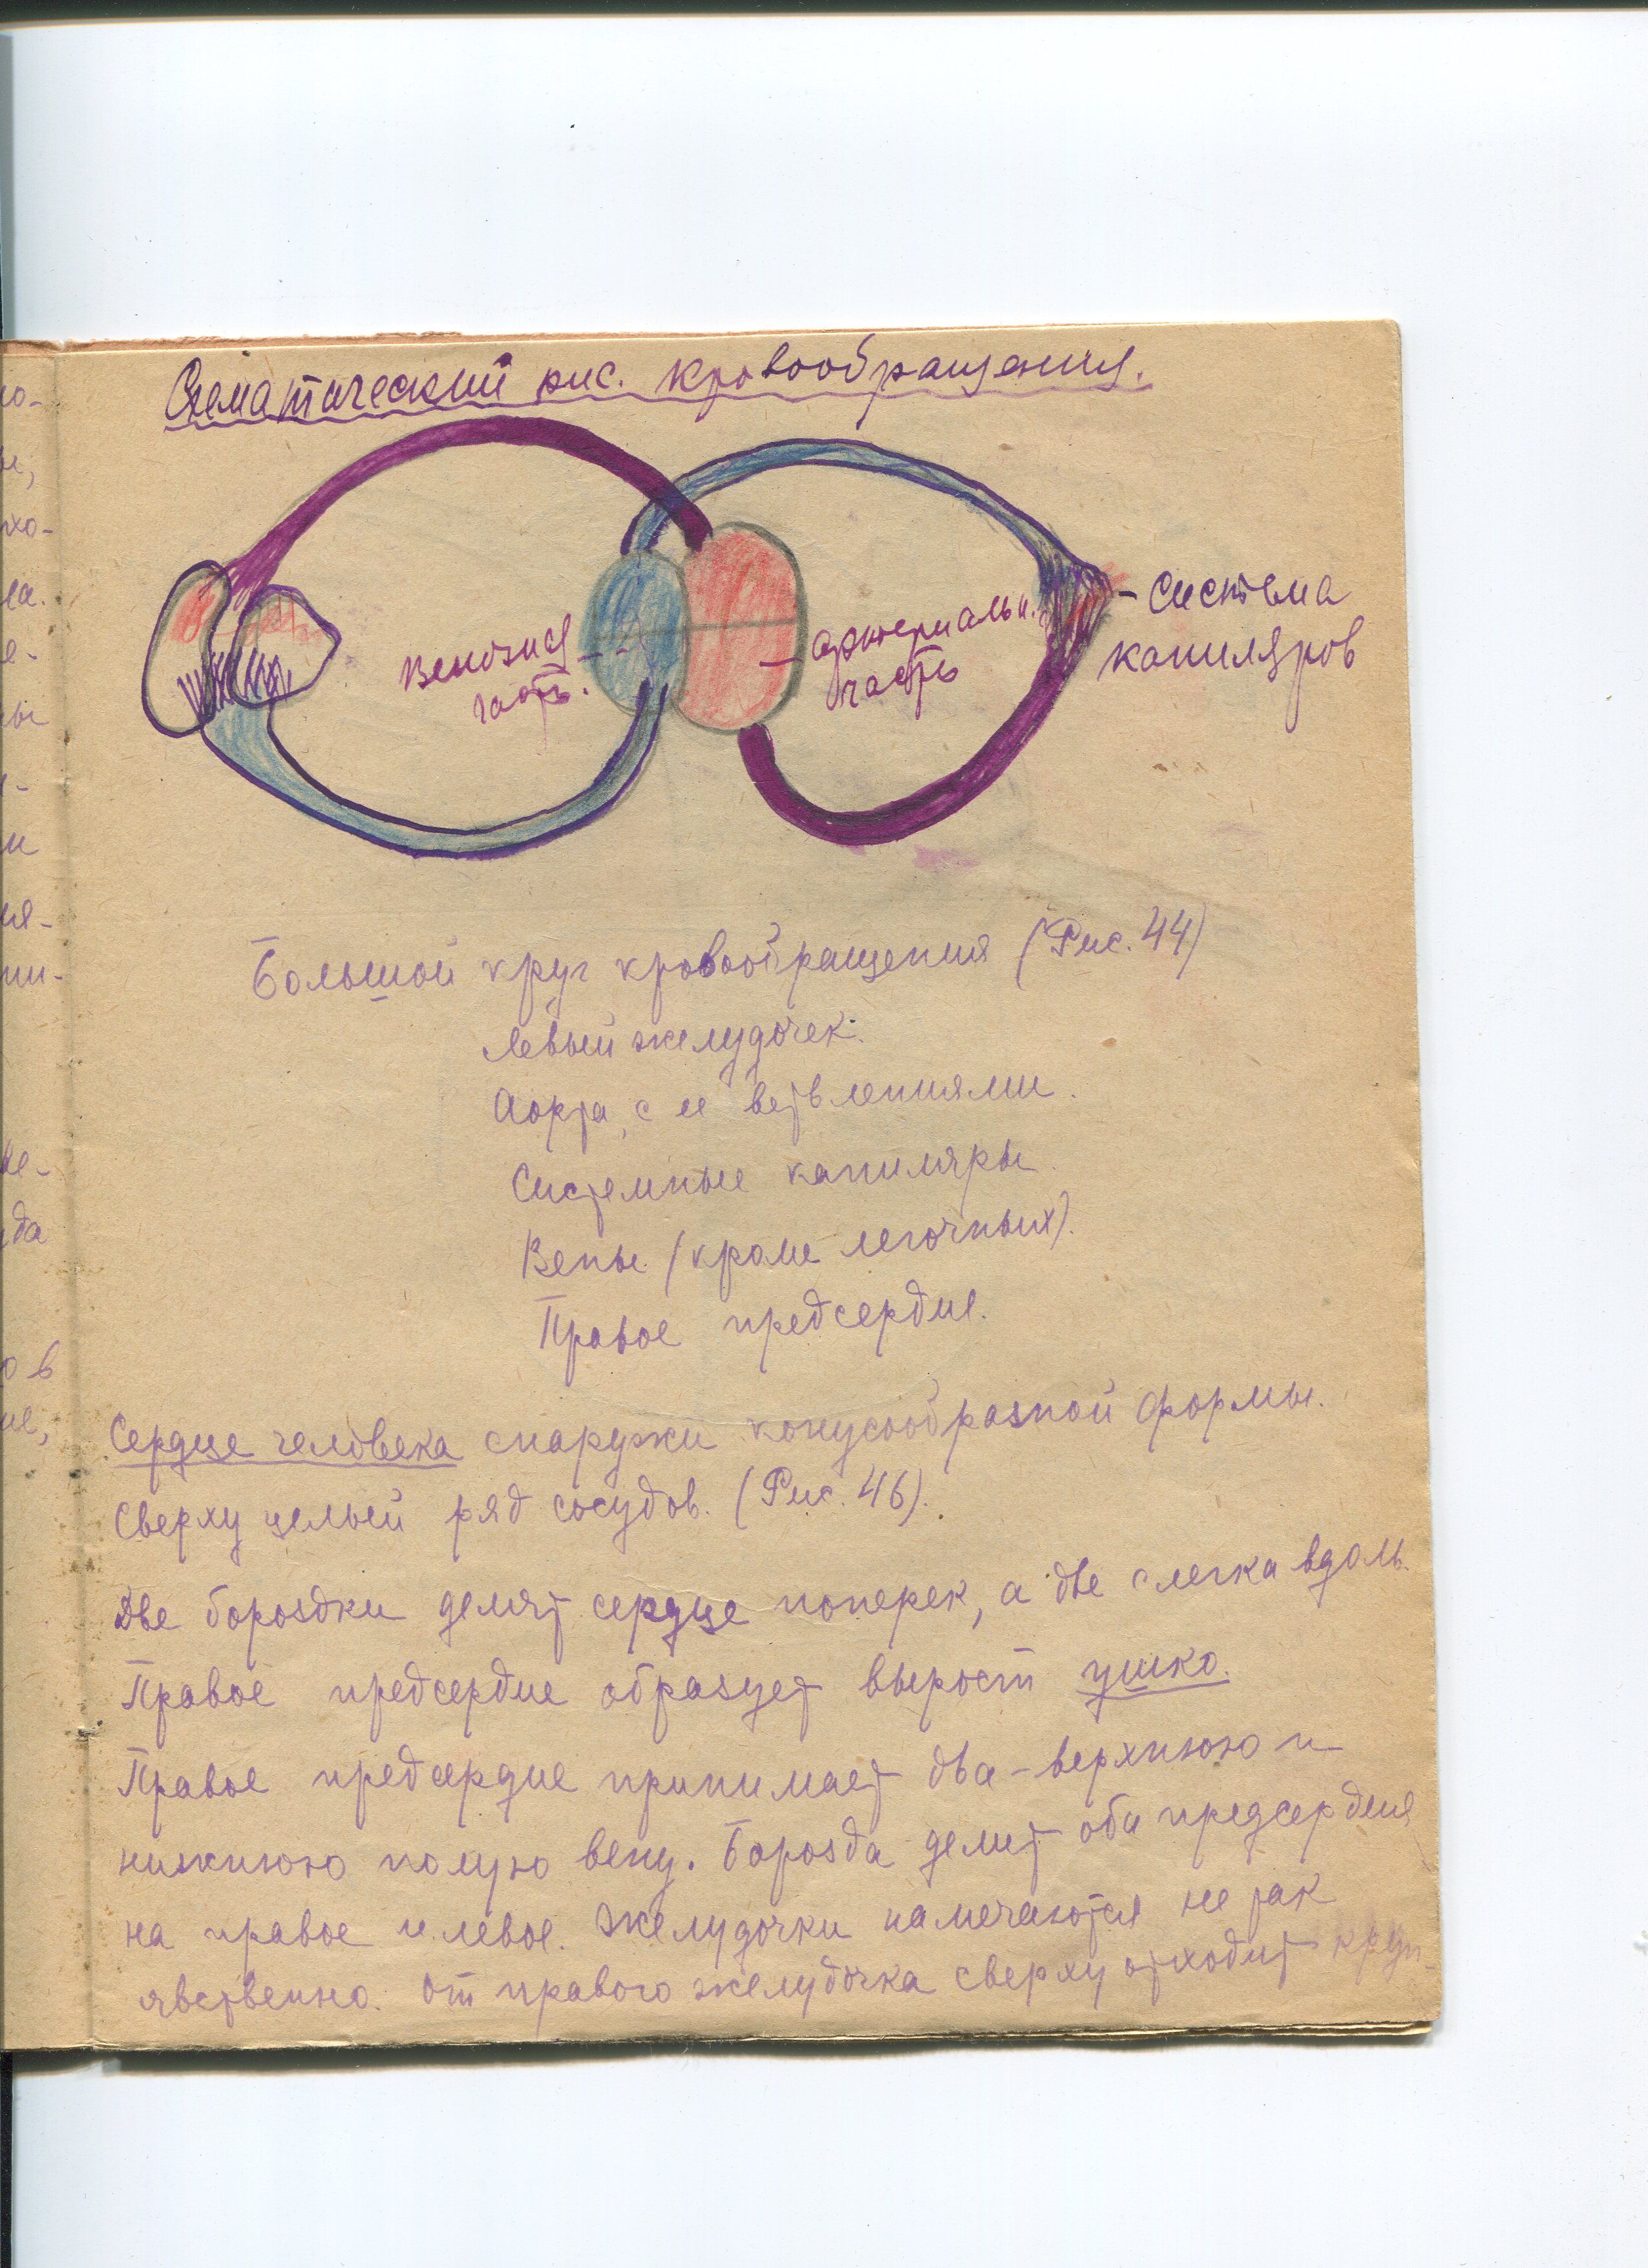 Схематический рис. кровообращения.
Венозная
часть.
артериальн.
часть
Система
капиляров
Большой круг кровообращения (Рис. 44)
Левый желудочек.
Аорта, с ее ветвлениями.
Системные капиляры.
Вены (кроме легочных).
Правое предсердие.
Сердце человека снаружи конусообразной формы.
Сверху целый ряд сосудов. (Рис. 46).
Две бороздки делят сердце поперек, а две слегка вдоль.
Правое предсердие образует вырост ушко.
Правое предсердие принимает два - верхнюю и
нижнюю полую вену. Борозда делит оба предсердия
на правое и левое. Желудочки намечаются не так
явственно. От правого желудочка сверху отходит круп-